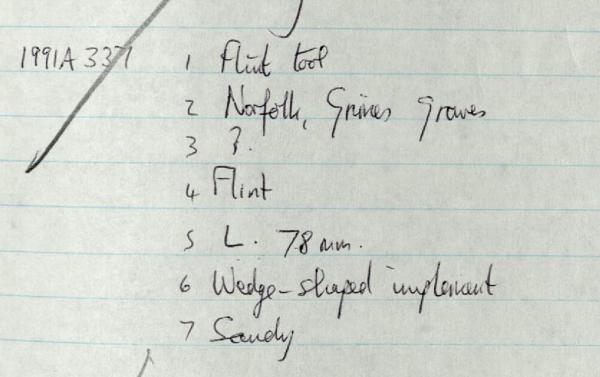 1991A 337 1 Flint tool
2 Norfolk, Grimes Graves
3 ?.
4 Flint
5 L. 78 mm.
6 Wedge-shaped implement
7 Sandy